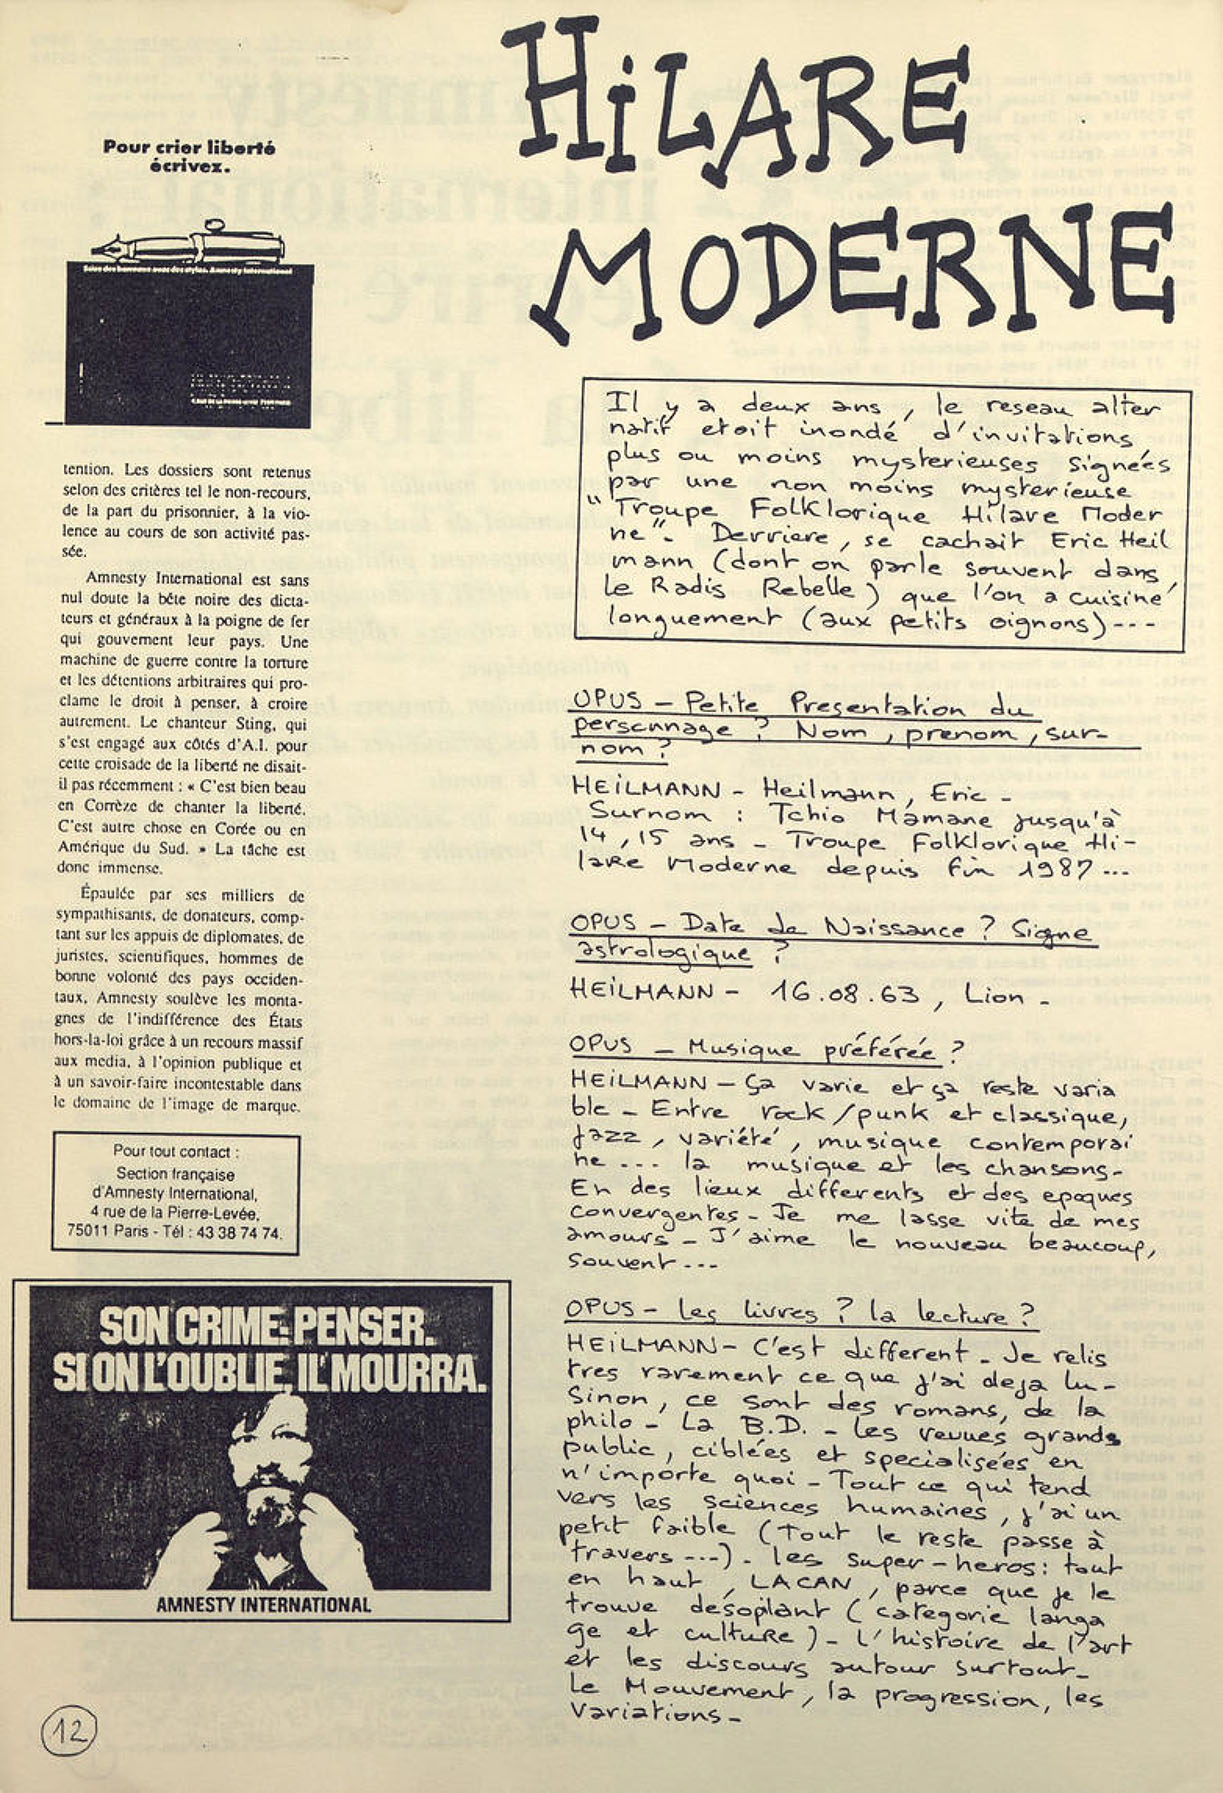 Pour crier liberté
écrivez.
tention. Les dossiers sont retenus
selon des critères tel le non-recours,
de la part du prisonnier, à la vio-
lence au cours de son activité pas-
sée.
Amnesty International est sans
nul doute la bête noire des dicta-
teurs et généraux à la poigne de fer
qui gouvement leur pays. Une
machine de guerre contre la torture
et les détentions arbitraires qui pro-
clame le droit à penser, à croire
autrement. Le chanteur Sting, qui
s'est engagé aux côtés d'A.I. pour
cette croisade de la liberté ne disait-
il pas récemment : « C'est bien beau
en Corrèze de chanter la liberté.
C'est autre chose en Corée ou en
Amérique du Sud. » La tâche est
donc immense.
Épaulée par ses milliers de
sympathisants, de donateurs, comp-
tant sur les appuis de diplomates, de
juristes, scientifiques, hommes de
bonne volonté des pays occiden-
taux, Amnesty soulève les monta-
gnes de l'indifférence des États
hors-la-loi grâce à un recours massif
aux media, à l'opinion publique et
à un savoir-faire incontestable dans
le domaine de l'image de marque.
Pour tout contact :
Section française
d'Amnesty International,
4 rue de la Pierre-Levée,
75011 Paris - Tél : 43 38 74 74.
SON CRIME: PENSER.
SI ON L'OUBLIE, IL MOURRA.
AMNESTY INTERNATIONAL
12
HILARE
MODERNE
Il y a deux ans, le reseau alter
natif etait inondé d'invitations
plus ou moins mysterieuses signées
par une non moins mysterieuse
"Troupe Folklorique Hilare Moder
ne". Derriere, se cachait Eric Heil
mann (dont on parle souvent dans
Le Radis Rebelle) que l'on a cuisiné
longuement (aux petits oignons)---
OPUS - Petite Presentation du
personnage ? Nom, prenom, sur-
nom ?
HEILMANN - Heilmann, Eric -
Surnom : Tchio Mamane jusqu'à
14, 15 ans - Troupe Folklorique Hi-
lare Moderne depuis fin 1987...
OPUS - Date de Naissance ? Signe
astrologique ?
HEILMANN - 16.08.63, Lion -
OPUS - Musique préférée ?
HEILMANN - Ça varie et ça reste varia
ble - Entre rock/punk et classique,
Jazz, variété, musique contemporai
ne ... la musique et les chansons-
En des lieux differents et des epoques
convergentes - Je me lasse vite de mes
amours - J'aime le nouveau beaucoup,
souvent...
OPUS - Les livres ? la lecture ?
HEILMANN - C'est different - Je relis
tres rarement ce que j'ai deja lu -
Sinon, ce sont des romans, de la
philo - La B.D. - Les revues grands
public, ciblées et specialisées en
n'importe quoi - Tout ce qui tend
vers les sciences humaines, j'ai un
petit faible (Tout le reste passe à
travers ---) - Les super-heros: tout
en haut, LACAN, parce que je le
trouve désopilant (categorie langa
ge et culture) - L'histoire de l'art
et les discours autour surtout -
Le Mouvement, la progression, les
variations -